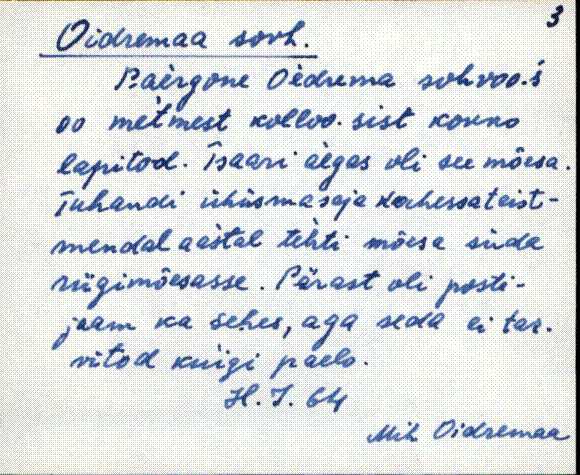 3
Oidremaa sovh.
Päergone Oedrema sohvoo.s
oo metmest kolloo.sist kokko
lapitod. Tsaari aegas oli see mõesa.
Tuhandi ühüsmasaja kahessateist-
mendal aastal tehti mõesa siida
riigimõesasse. Pärast oli posti-
jaam ka sehes, aga seda ei tar-
vitod kuigi paelo.
H. J. 64
Mih Oidremaa